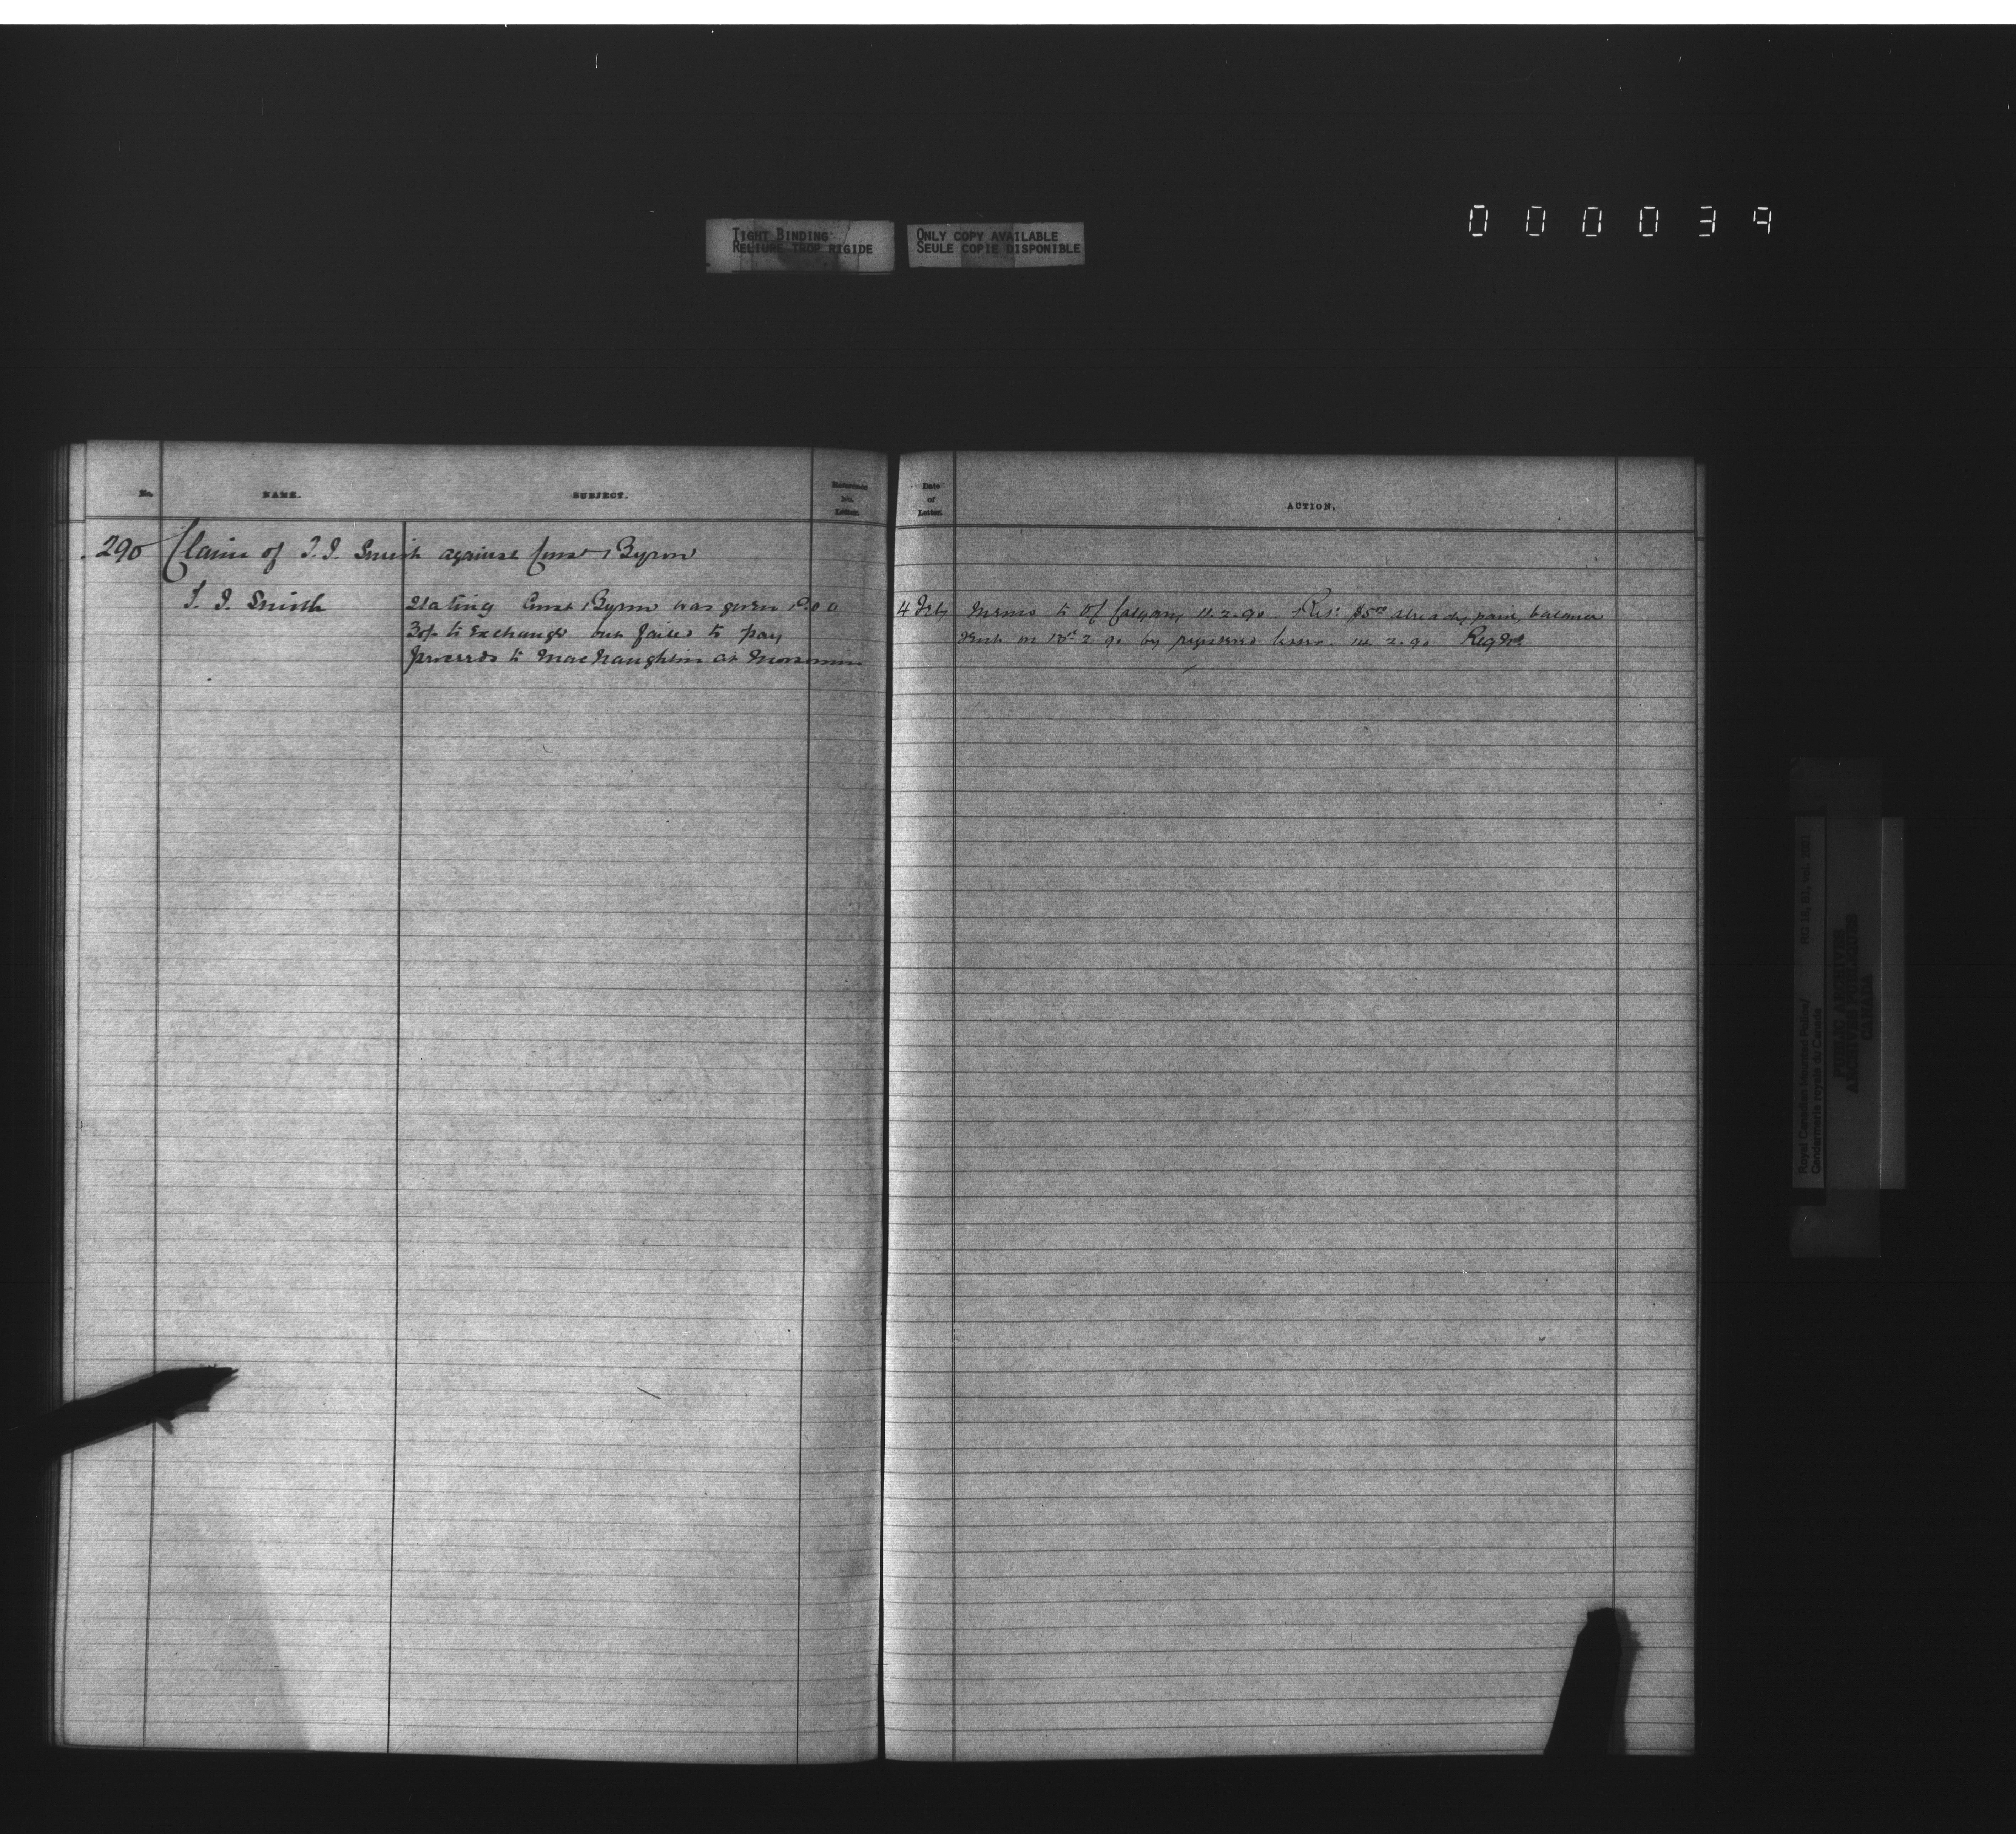 TIGHT BINDING
RELIURE TROP RIGIDE
ONLY COPY AVAILABLE
SEULE COPIE DISPONIBLE
000039
No.
NAME.
SUBJECT.
Reference
No.
Letter.
Date
of
Letter.
ACTION.
290 Claim of T. J. Smith against Const Byron
T. J. Smith
Stating Const Byron was given P.O.O
to exchange but failed to pay
proceeds to MacNaughton at
4 Feby
Memo to Of Calgary 11.2.90. $5 already paid, balance
sent on 2 90 by registered 2.90
Royal Canadian Mounted Police/
Gendarmerie royale du Canada
RG 18, B1, vol.
PUBLIC ARCHIVES
ARCHIVES PUBLIQUES
CANADA